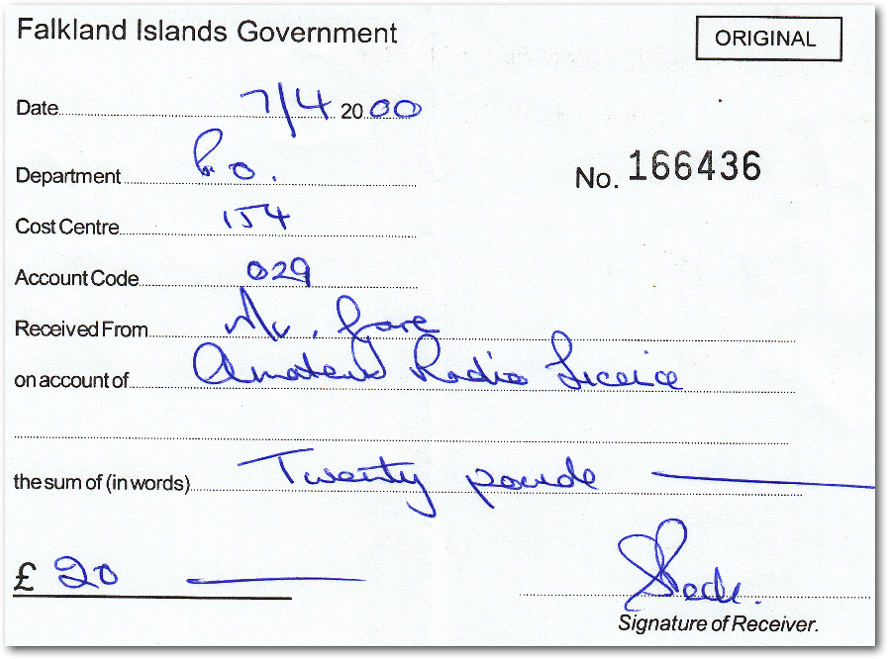 Falkland Islands Government
ORIGINAL
Date 7/4 2000
Department P.O.
No. 166436
Cost Centre 154
Account Code 029
Received From Mr. Gare
on account of Amateur Radio Licence
the sum of (in words) Twenty pounds
£ 20
Signature of Receiver.